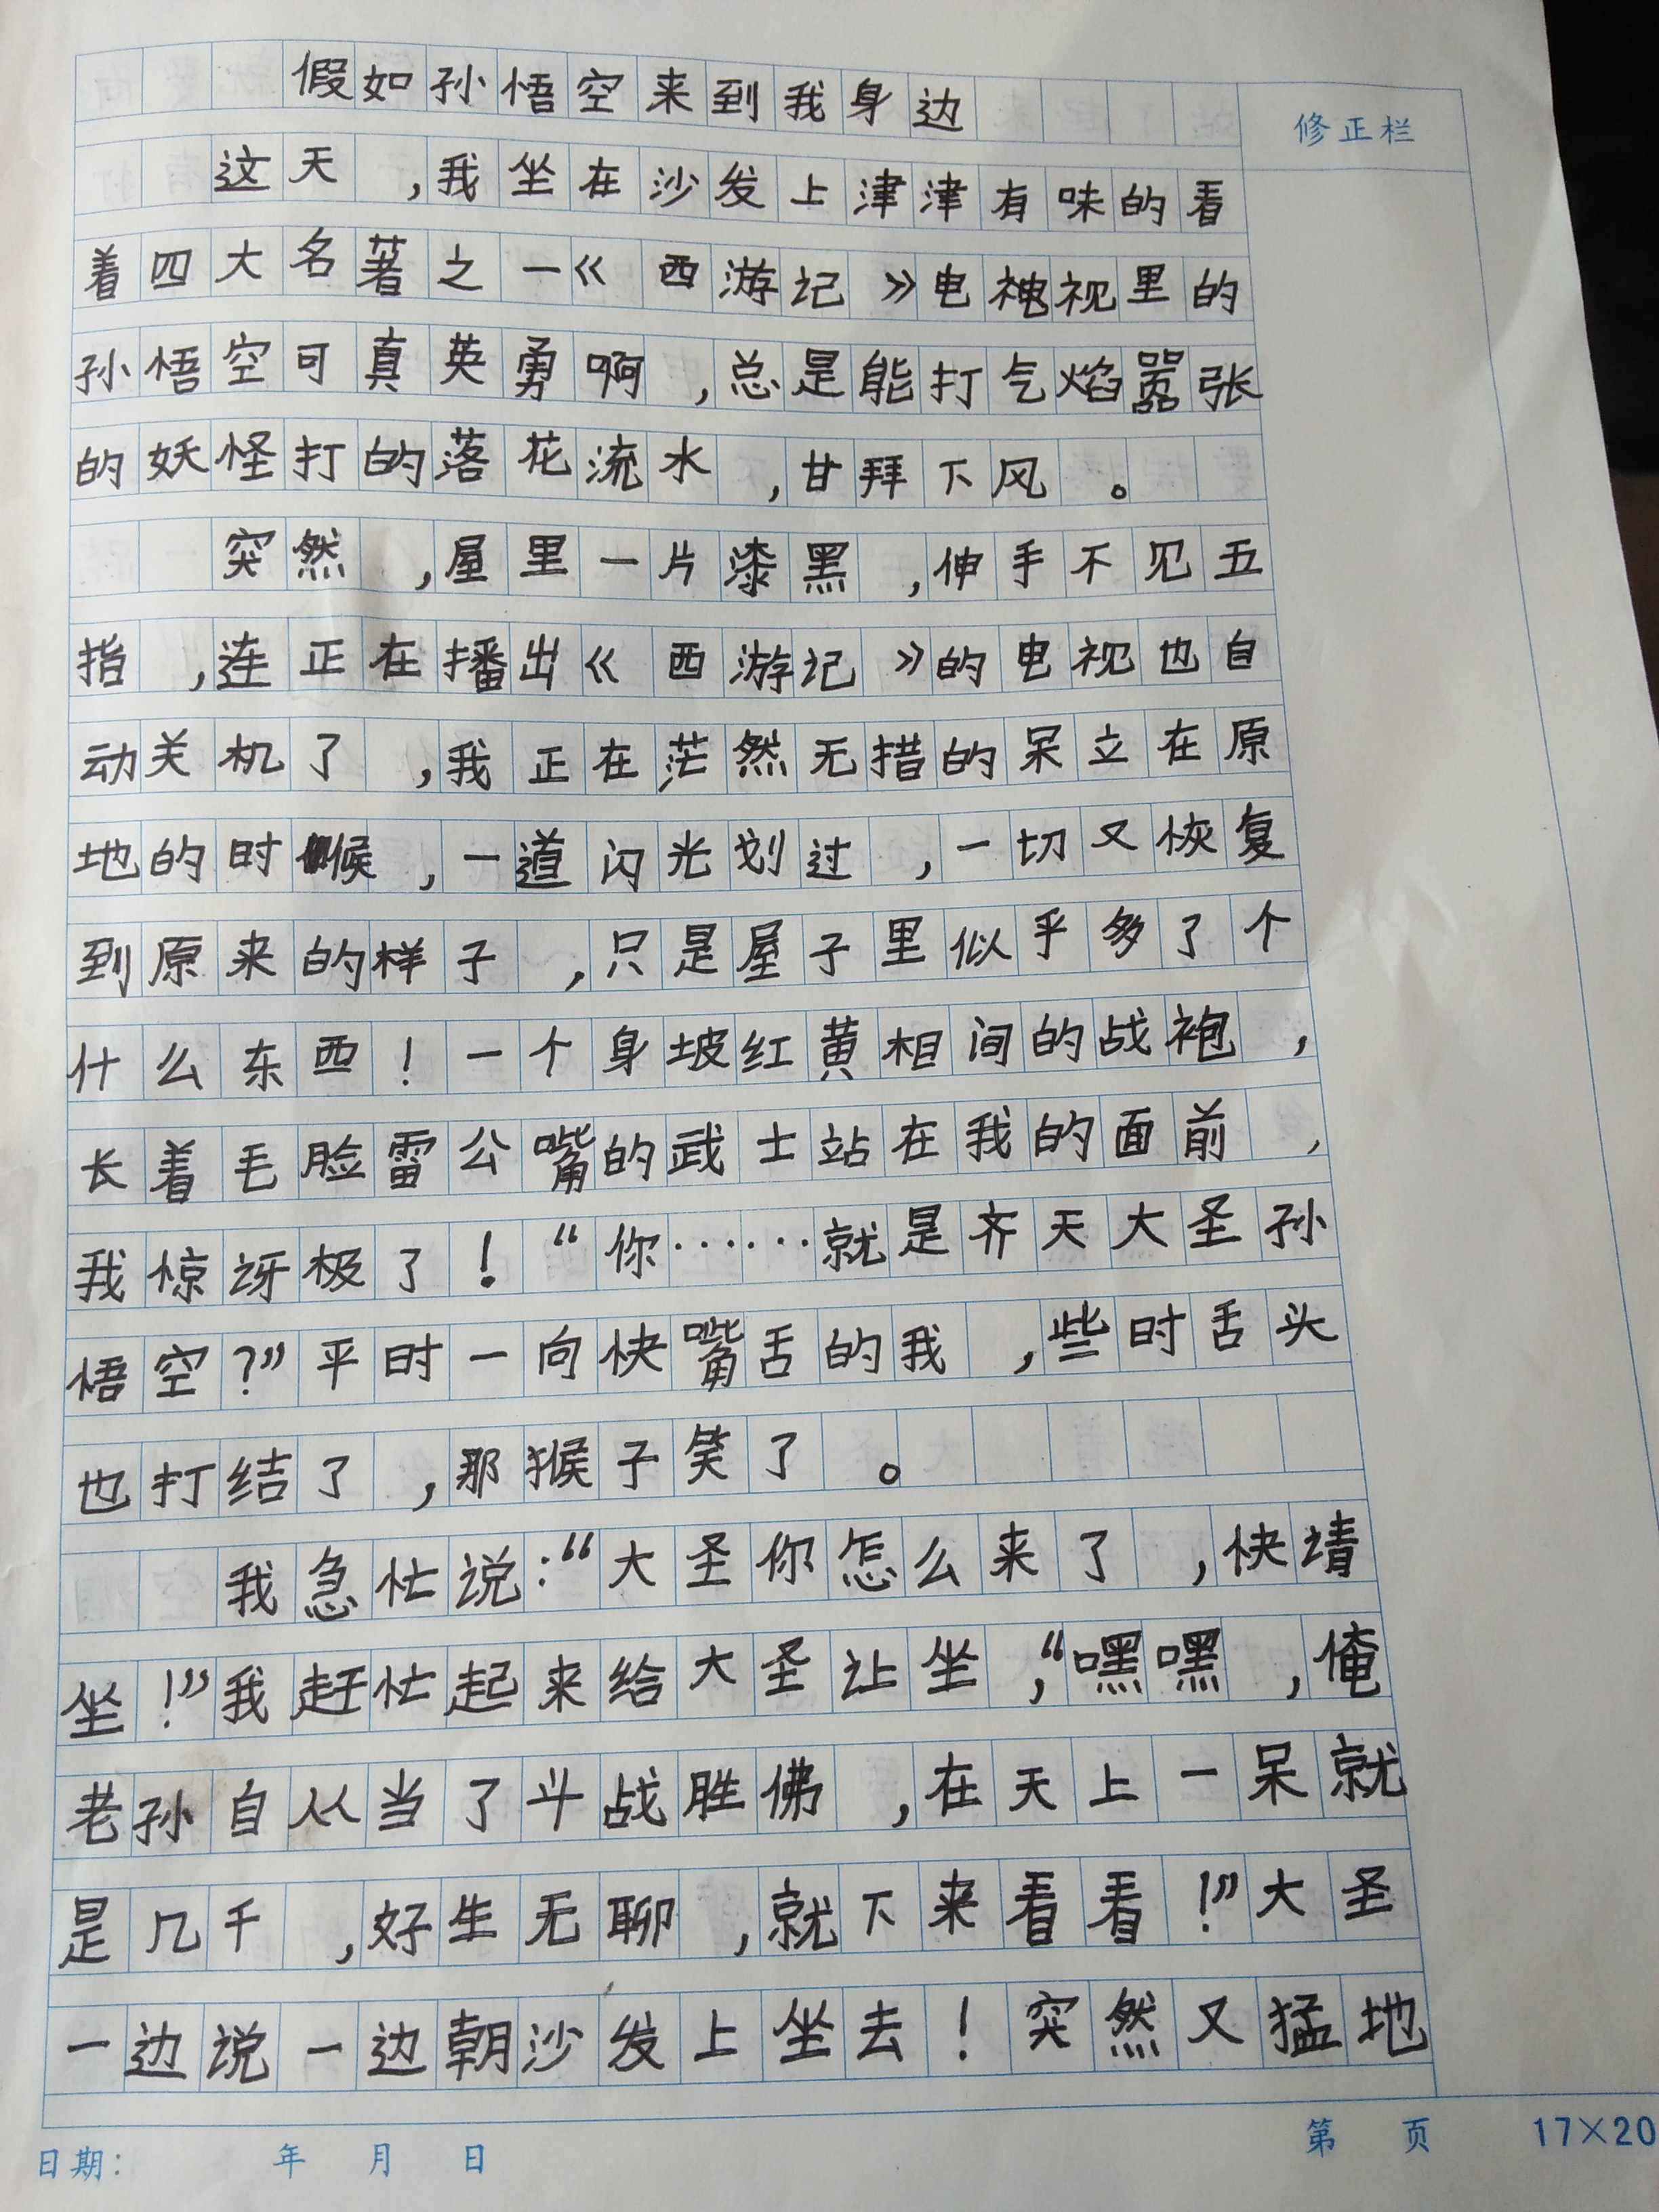 假如孙悟空来到我身边
修正栏
这天,我坐在沙发上津津有味的看
着四大名著之一《西游记》电视里的
孙悟空可真英勇啊,总是能打气焰嚣张
的妖怪打的落花流水,甘拜下风。
突然,屋里一片漆黑,伸手不见五
指,连正在播出《西游记》的电视也自
动关机了,我正在茫然无措的呆立在原
地的时候,一道闪光划过,一切又恢复
到原来的样子,只是屋子里似乎多了个
什么东西!一个身坡红黄相间的战袍,
长着毛脸雷公嘴的武士站在我的面前,
我惊讶极了!“你……就是齐天大圣孙
悟空?”平时一向快嘴舌的我,些时舌头
也打结了,那猴子笑了。
我急忙说:“大圣你怎么来了,快请
坐!”我赶忙起来给大圣让坐,“嘿嘿,俺
老孙自从当了斗战胜佛,在天上一呆就
是几千,好生无聊,就下来看看!”大圣
一边说一边朝沙发上坐去!突然又猛地
日期: 年 月 日
第 页 17×20